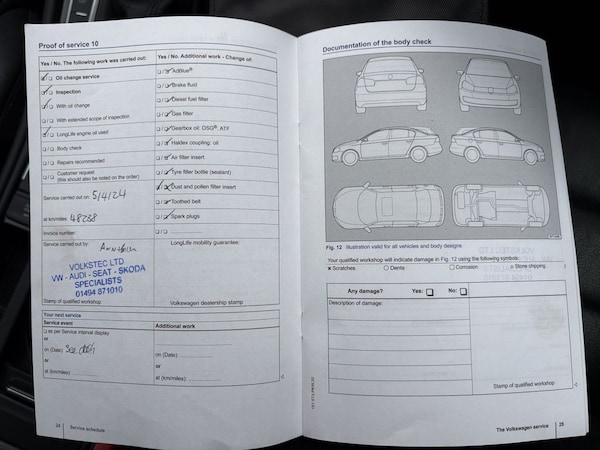 Proof of service 10
Yes / No. The following work was carried out:
Oil change service
Inspection
With oil change
With extended scope of inspection
LongLife engine oil used
Body check
Repairs recommended
Customer request
(this should also be noted on the order)
Service carried out on: 5/4/24
at km/miles: 48238
Invoice number:
Service carried out by
VOLKSTEC LTD
VW - AUDI - SEAT - SKODA
SPECIALISTS
01494 871010
Stamp of qualified workshop
Yes / No. Additional work - Change of:
AdBlue®
Brake fluid
Diesel fuel filter
Gas filter
Gearbox oil: DSG®, ATF
Haldex coupling: oil
Air filter insert
Tyre filler bottle (sealant)
Dust and pollen filter insert
Toothed belt
Spark plugs
LongLife mobility guarantee:
Volkswagen dealership stamp
Your next service
Service event
as per Service interval display
or
on (Date): See
or
at (km/miles):
Additional work
on (Date):
or
at (km/miles):
24 Service schedule
Documentation of the body check
Fig. 12 Illustration valid for all vehicles and body designs
Your qualified workshop will indicate damage in Fig. 12 using the following symbols:
x Scratches ○ Dents ◇ Corrosion Stone chipping
Any damage? Yes: No:
Description of damage:
Stamp of qualified workshop
The Volkswagen service 25